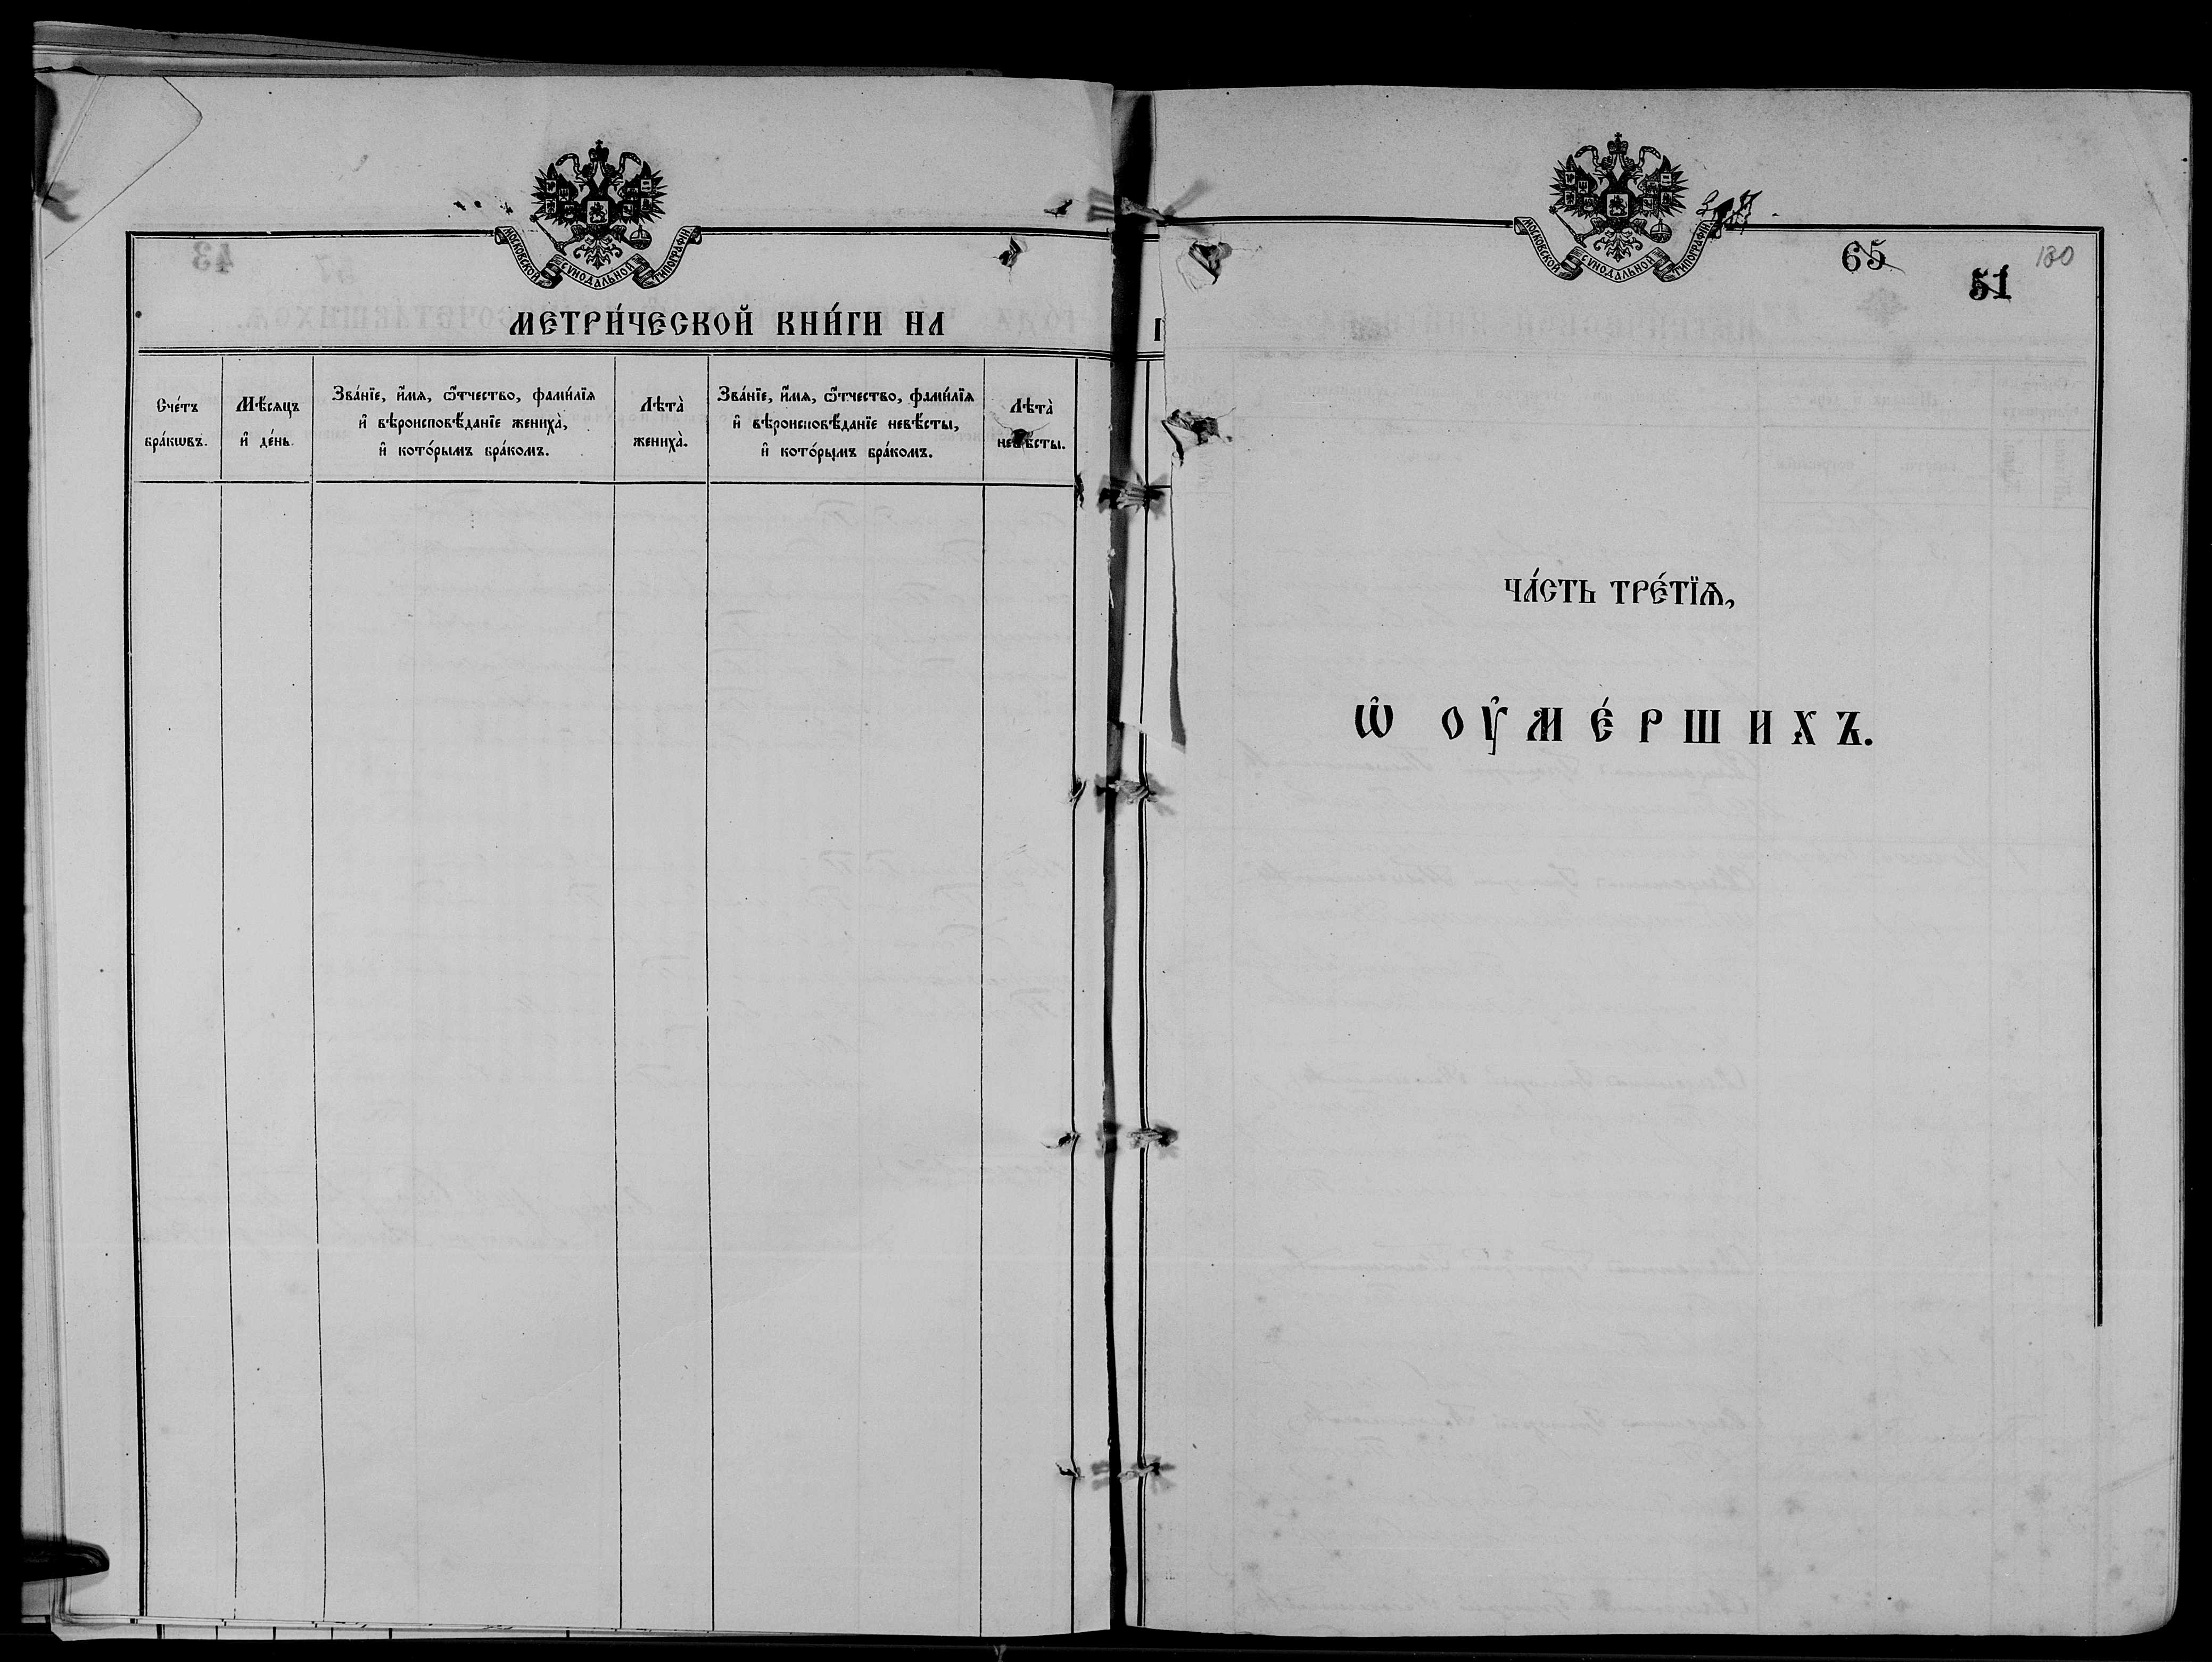 МОСКОВСКОЙ СѴНОДАЛЬНОЙ ТИПОГРАФІИ
МЕТРИ́ЧЕСКОЙ КНИ́ГИ НА
Сче́тъ
бра́кѡвъ.
Мѣ́сяцъ
и҆ де́нь.
Зва́нїе, и҆́мя, ѻ҆́тчество, фами́лїя
и҆ вѣроисповѣ́данїе жениха̀,
и҆ кото́рымъ бра́комъ.
Лѣта̀
жениха̀.
Зва́нїе, и҆́мя, ѻ҆́тчество, фами́лїя
и҆ вѣроисповѣ́данїе невѣ́сты,
и҆ кото́рымъ бра́комъ.
Лѣта̀
невѣ́сты.
МОСКОВСКОЙ СѴНОДАЛЬНОЙ ТИПОГРАФІИ
65
51
130
ЧА́СТЬ ТРЕ́ТЇѦ,
Ѡ҆ ОУ҆МЕ́РШИХЪ.